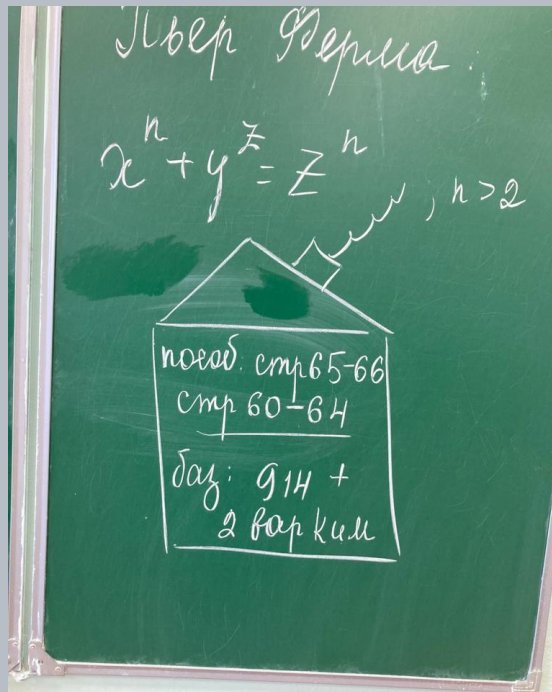 Пьер Ферма.
xⁿ + yᶻ = zⁿ, n>2
пособ: стр 65-66
стр 60-64
баз: 914 +
2 вар ким